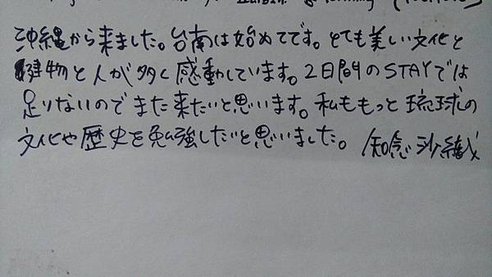 沖縄から来ました。台南は始めてです。とても美しい文化と
建物と人が多く感動しています。2日間のSTAYでは
足りないのでまた来たいと思います。私ももっと琉球の
文化や歴史を勉強したいと思いました。 知念沙織